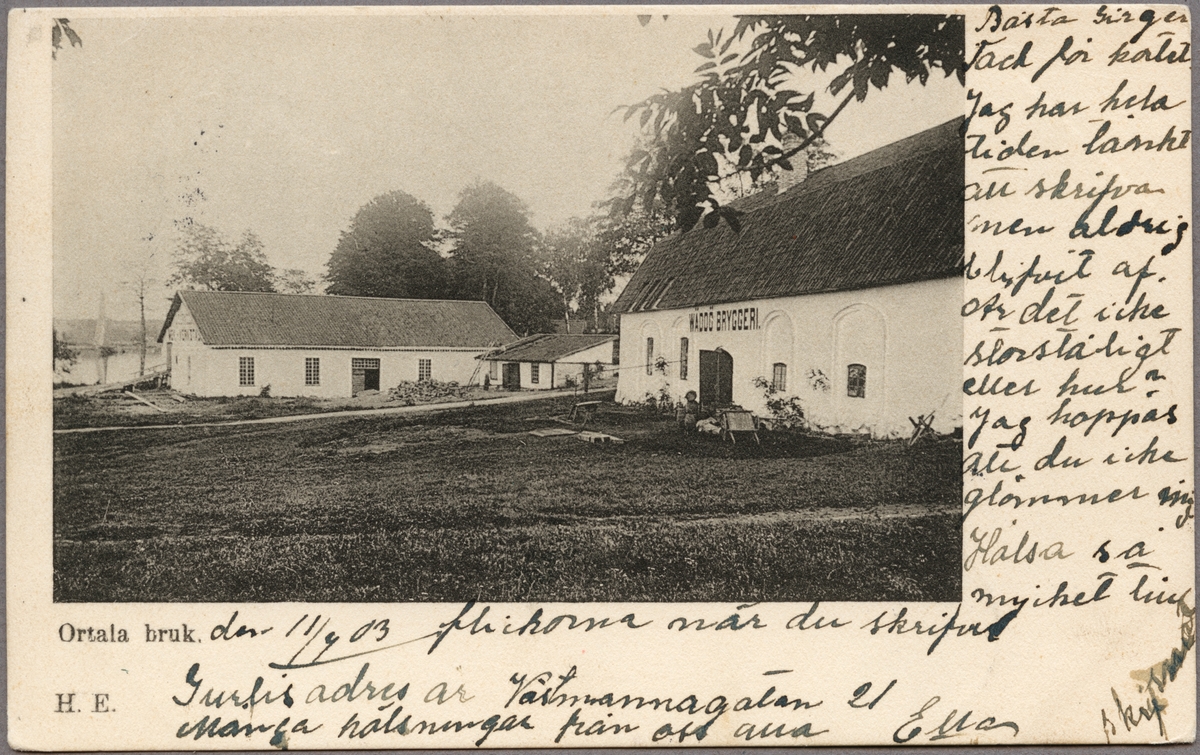 Bästa Birger
Tack för kortet.
Jag har hela
tiden tänkt
att skrifva
men aldrig
blifvit af.
Är det icke
storståtligt
eller hur?
Jag hoppas
att du icke
glömmer mig
Hälsa så
mycket till
flickorna när du skrifver
WÄDDÖ BRYGGERI.
Ortala bruk. den 11/9 03
H. E.
Gurlis adres är Västmannagatan 21
Många hälsningar från oss alla
Elsa
skrif snart